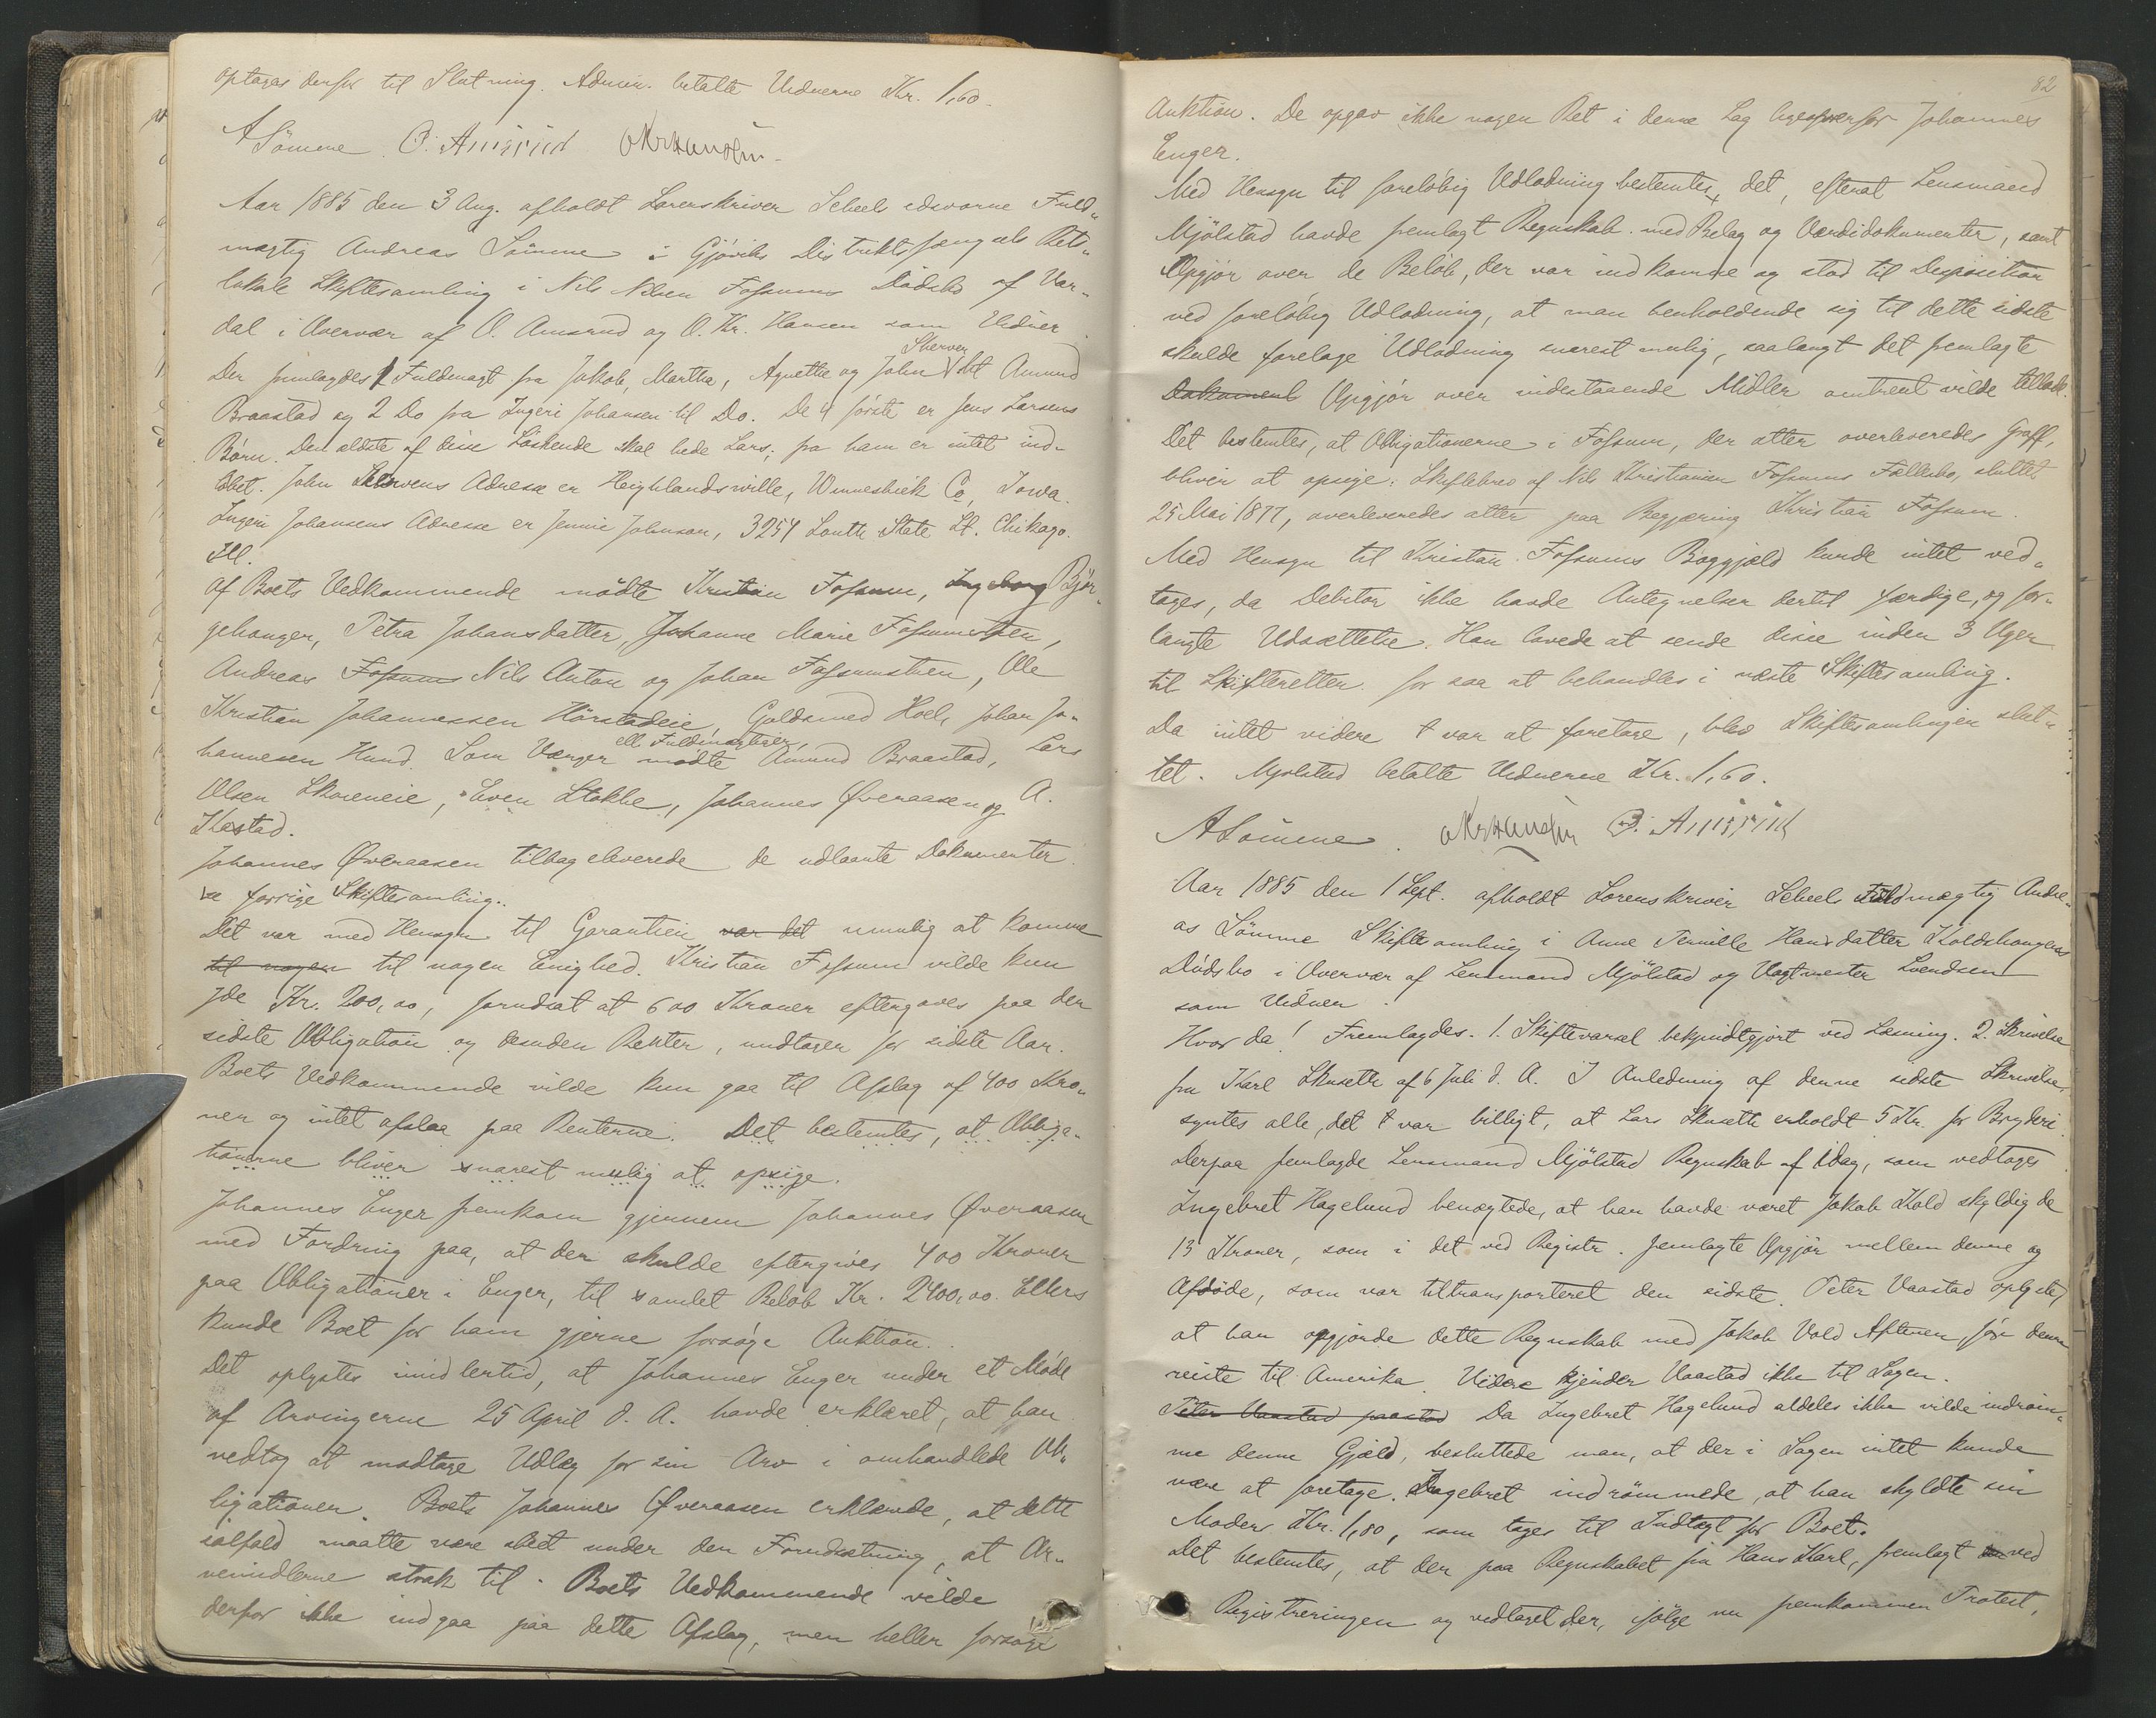 optages derfor til Slutning. Admin. betalte Vidnerne Kr. 1,60.
ASömme. O. Amsrud OKrHansen.
Aar 1885 den 3 Aug. afholdt Sorenskriver Scheels edsvorne Fuld„
mægtig Andreas Sömme i Gjöviks Distriktsfængsels Rets„
lokale Skiftesamling i Nils Nilsen Fossums Dödsbo af Var„
dal i Overvær af O. Amsrud og O. Kr. Hansen som Vidner.
Der fremlagdes 1 Fuldmagt fra Jakob, Martha, Agnethe og John Skerven til Amund
Braastad og 2 Do fra Ingeri Johansen til Do. De 4 förste er Jens Larsens
Börn. Den ældste af disse Söskende skal hede Lars; fra ham er intet ind„
löbet. John Skervens Adresse er Heighlandsville, Winneshiek Co, Iowa.
Ingeri Johansens Adresse er Jennie Johnson, 3254 South State St. Chikago.
Ill.
Af Boets Vedkommende mödte Kristian Fossum, Ingeborg Björ„
gehaugen, Petra Johansdatter, Johanne Marie Fossumstuen,
Andreas Fossums Nils Anton og Johan Fossumstuen, Ole
Kristian Johannessen Hörstadeie, Guldsmed Hoel, Johan Jo„
hannesen Hund. Som Værger ell Fuldmægtiger, mödte Amund Braastad, Lars
Olsen Skoreneie, Even Stokke, Johannes Øveraasen og A.
Kastad.
Johannes Øveraasen tilbageleverede de udlaante Dokumenter
fra forrige Skiftesamling.
Det var med Hensyn til Garantien var det umulig at komme
til nogen til nogen Enighed. Kristian Fossum vilde kun
yde Kr. 200,00, forudsat at 600 Kroner eftergaves paa den
sidste Obligation og desuden Renter, undtagen for sidste Aar.
Boets Vedkommende vilde kun gaa til Afslag af 400 Kro„
ner og intet afslaa paa Renterne. Det bestemtes, at Obliga„
tionerne bliver snarest mulig at opsige.
Johannes Enger fremkom gjennem Johannes Øveraasen
med Fordring paa, at der skulde eftergives 400 Kroner
paa Obligationer i Enger, til samlet Belöb Kr. 2400,00. Ellers
kunde Boet for ham gjerne forsöge Auktion.
Det oplystes imidlertid, at Johannes Enger under et Möde
af Arvingerne 25 April d. A. havde erklæret, at han
vedtog at modtage Udlæg for sin Arv i omhandlede Ob„
ligationer. Boets Johannes Øveraasen erklærede, at dette
ialfald maatte være skeet under den Forudsætning, at Ar„
vemidlerne strak til. Boets Vedkommende vilde
derfor ikke indgaa paa dette Afslag, men heller forsöge
82
Auktion. De opgav ikke nogen Ret i denne Sag ligeoverfor Johannes
Enger.
Med Hensyn til foreløbig Udlodning bestemtes det, efterat Lensmand
Mjölstad havde fremlagt Regnskab med Belag og Værdidokumenter, samt
Opgjör over de Belöb, der var indkomne og stod til Disposition
ved foreløbig Udlodning, at man henholdende sig til dette sidste
skulde foretage Udlodning snarest mulig, saalangt det fremlagte
Dokument Opgjör over indestaaende Midler omtrent vilde tillade.
Det bestemtes, at Obligationerne i Fossum, der atter overleveredes Graff,
bliver at opsige: Skiftebrev af Nils Kristiansen Fossums Fællesbo, sluttet
25 Mai 1877, overleveredes atter paa Begjæring Kristian Fossum.
Med Hensyn til Kristian Fossums Boggjæld kunde intet ved„
tages, da Debitor ikke havde Antegnelser dertil færdige, og for„
langte Udsættelse. Han lovede at sende disse inden 3 Uger
til Skifteretten for saa at behandles i næste Skiftesamling.
Da intet videre t var at foretage, blev Skiftesamlingen slut„
tet. Mjölstad betalte Vidnerne Kr. 1,60.
ASömme. OKrHansen O. Amsrud
Aar 1885 den 1 Sept. afholdt Sorenskriver Scheels Fuldmægtig Andre„
as Sömme Skiftesamling i Anne Pernille Hansdatter Koldshaugens
Dödsbo i Overvær af Lensmand Mjölstad og Vagtmester Svendsen
som Vidner.
Hvor da! Fremlagdes. 1. Skiftevarsel bekjendtgjort ved Læsning. 2. Skrivelse
fra Karl Skuseth af 6 Juli d. A. I Anledning af denne sidste Skrivelse,
syntes alle, det t var billigt, at Lars Skuseth erholdt 5 Kr. for Bryderi.
Derpaa fremlagde Lensmand Mjölstad Regnskab af idag, som vedtoges
Ingebret Hagelund benægtede, at han havde været Jakob Kold skyldig de
13 Kroner, som i det ved Registr. fremlagte Opgjör mellem denne og
Afdöde, som var tiltransporteret den sidste. Peter Vaastad oplyste,
at han opgjorde dette Regnskab med Jakob Vold Aftenen för denne
reiste til Amerika. Videre kjender Vaastad ikke til Sagen.
Peter Vaastad paastod Da Ingebret Hagelund aldeles ikke vilde indröm„
me denne Gjæld, besluttede man, at der i Sagen intet kunde
være at foretage. Ingebret indrömmede, at han skyldte sin
Moder Kr. 1,80, som tages til Indtægt for Boet.
Det bestemtes, at den paa Regnskabet fra Hans Karl, fremlagt ved
Registreringen og vedtaget der, ifölge nu fremkommen Protest,